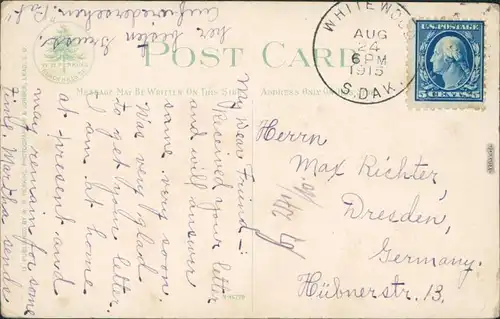 POST CARD
MESSAGE MAY BE WRITTEN ON THIS SIDE
ADDRESS ONLY ON
WHITEWOOD
AUG
24
6 PM
1915
S.DAK.
U.S. POSTAGE
5 CENTS 5
My Dear Friend -:
Received your letter
and will answer
same very soon.
Was very glad
to get your letter.
I am at home
at present and
may remain for some
time. Martha sends
her besten Gruss.
Aufwiedersehen.
Herrn
Max Richter,
Dresden,
Germany.
Hübnerstr. 13.